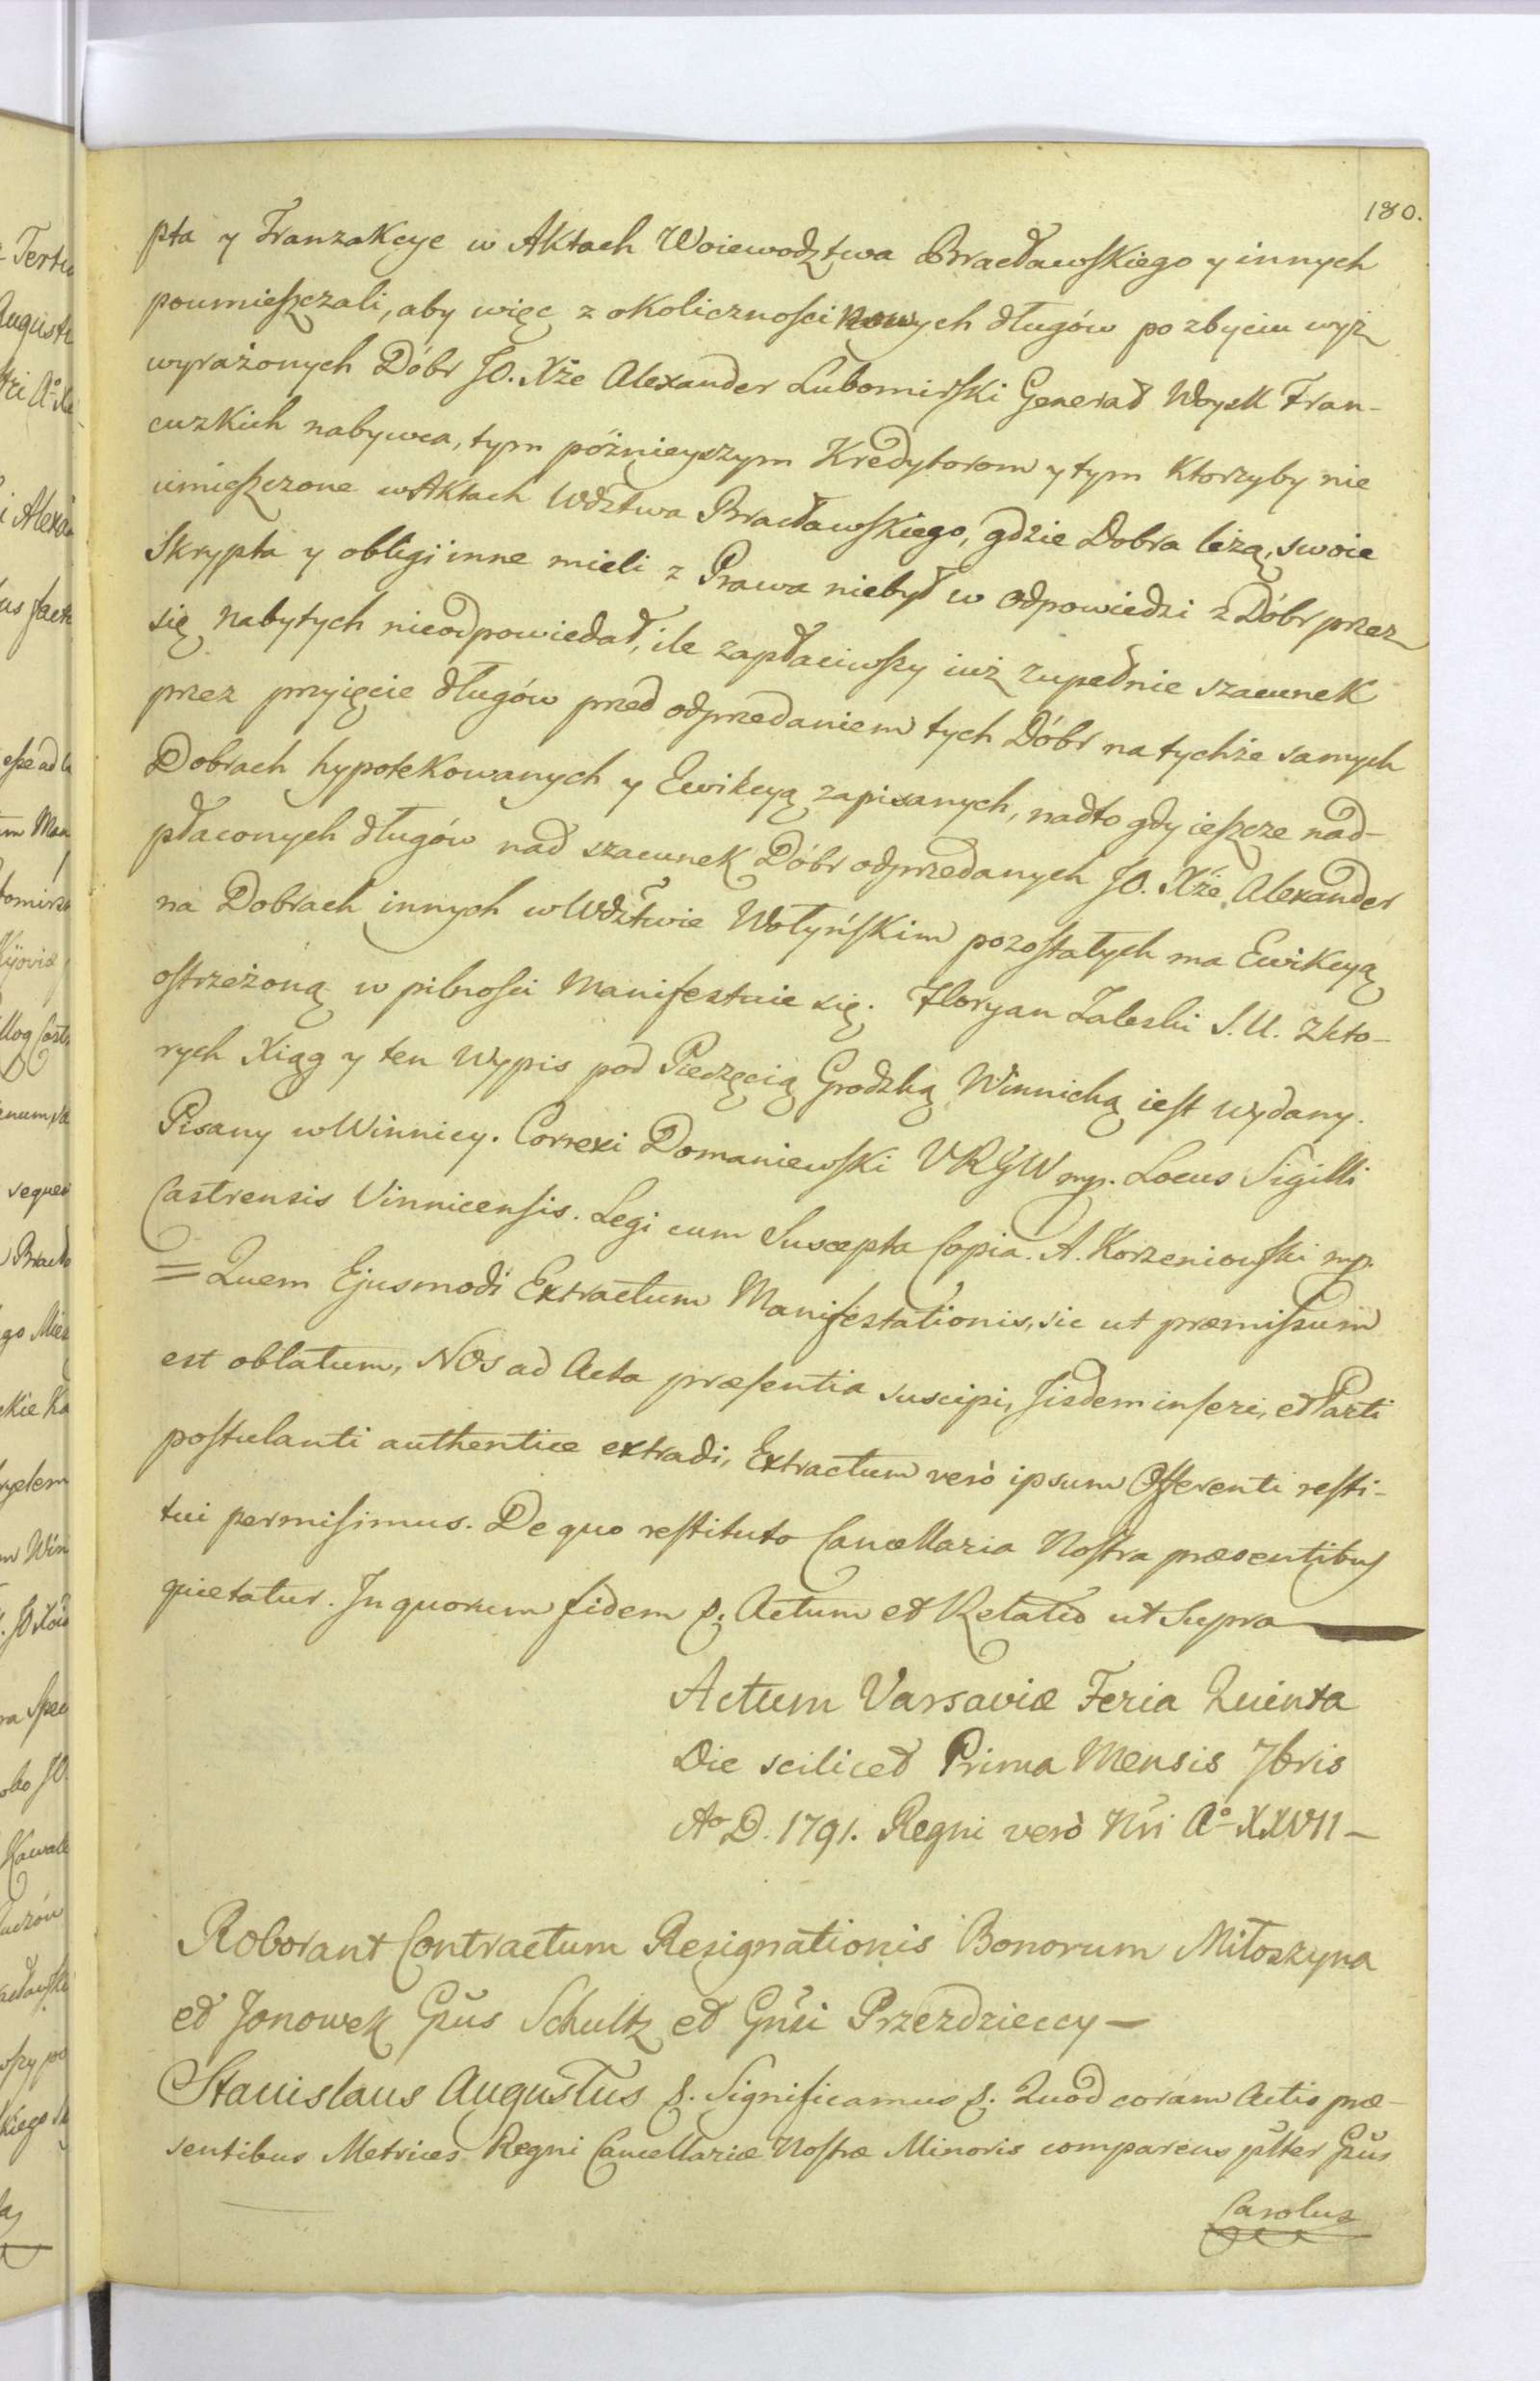 180.
pta y Tranzakcye w Aktach Woiewodztwa Bracławskiego y innych
poumieszczali, aby więc z okoliczności nowych długów po zbyciu wyż
wyrażonych Dóbr JO. Xże Alexander Lubomirski Generał Woysk Fran-
cuzkich nabywca, tym póżnieyszym Kredytorom y tym ktorzyby nie
umieszczone w Aktach Wdztwa Bracławskiego, gdzie Dobra leżą, swoie
Skrypta y obligi inne mieli z Prawa niebył w odpowiedzi z Dóbr przez
się nabytych nieodpowiedał, ile zapłaciwszy iuż zupełnie szacunek
przez przyięcie długów przed odprzedaniem tych Dóbr na tychże samych
Dobrach hypotekowanych y Ewikcyą zapisanych, nadto gdy ieszcze nad-
płaconych długów nad szacunek Dóbr odprzedanych JO. Xże Alexander
na Dobrach innych w Wdztwie Wołyńskim pozostałych ma Ewikcyą
ostrzeżoną w pilności Manifestuie się. Floryan Zaleski S. U. Z kto-
rych Xiąg y ten Wypis pod Pieczęcią Grodzką Winnicką iest wydany.
Pisany w Winnicy. Correxi Domaniewski VRGW mp. Locus Sigilli
Castrensis Vinnicensis. Legi cum Suscepta Copia. A. Korzeniowski mp.
= Quem Ejusmodi Extractum Manifestationis, sic ut præmissum
est oblatum, Nos ad Acta præsentia suscipi, Jisdem inseri, et Parti
postulanti authentice extradi, Extractum verò ipsum Offerenti resti-
tui permisimus. De quo restituto Cancellaria Nostra præsentibus
quietatur. In quorum fidem &. Actum et Relatio ut Supra
Actum Varsaviæ Feria Quinta
Die scilicet Prima Mensis 7bris
Ao D. 1791. Regni verò Nri Ao XXVII –
Roborant Contractum Resignationis Bonorum Miłoszyna
et Jonowek Gñus Schultz et Gñsi Przezdzieccy –
Stanislaus Augustus &. Significamus &. Quod coram Actis præ-
sentibus Metrices Regni Cancellariæ Nostræ Minoris comparens pltter Gñus
Carolus